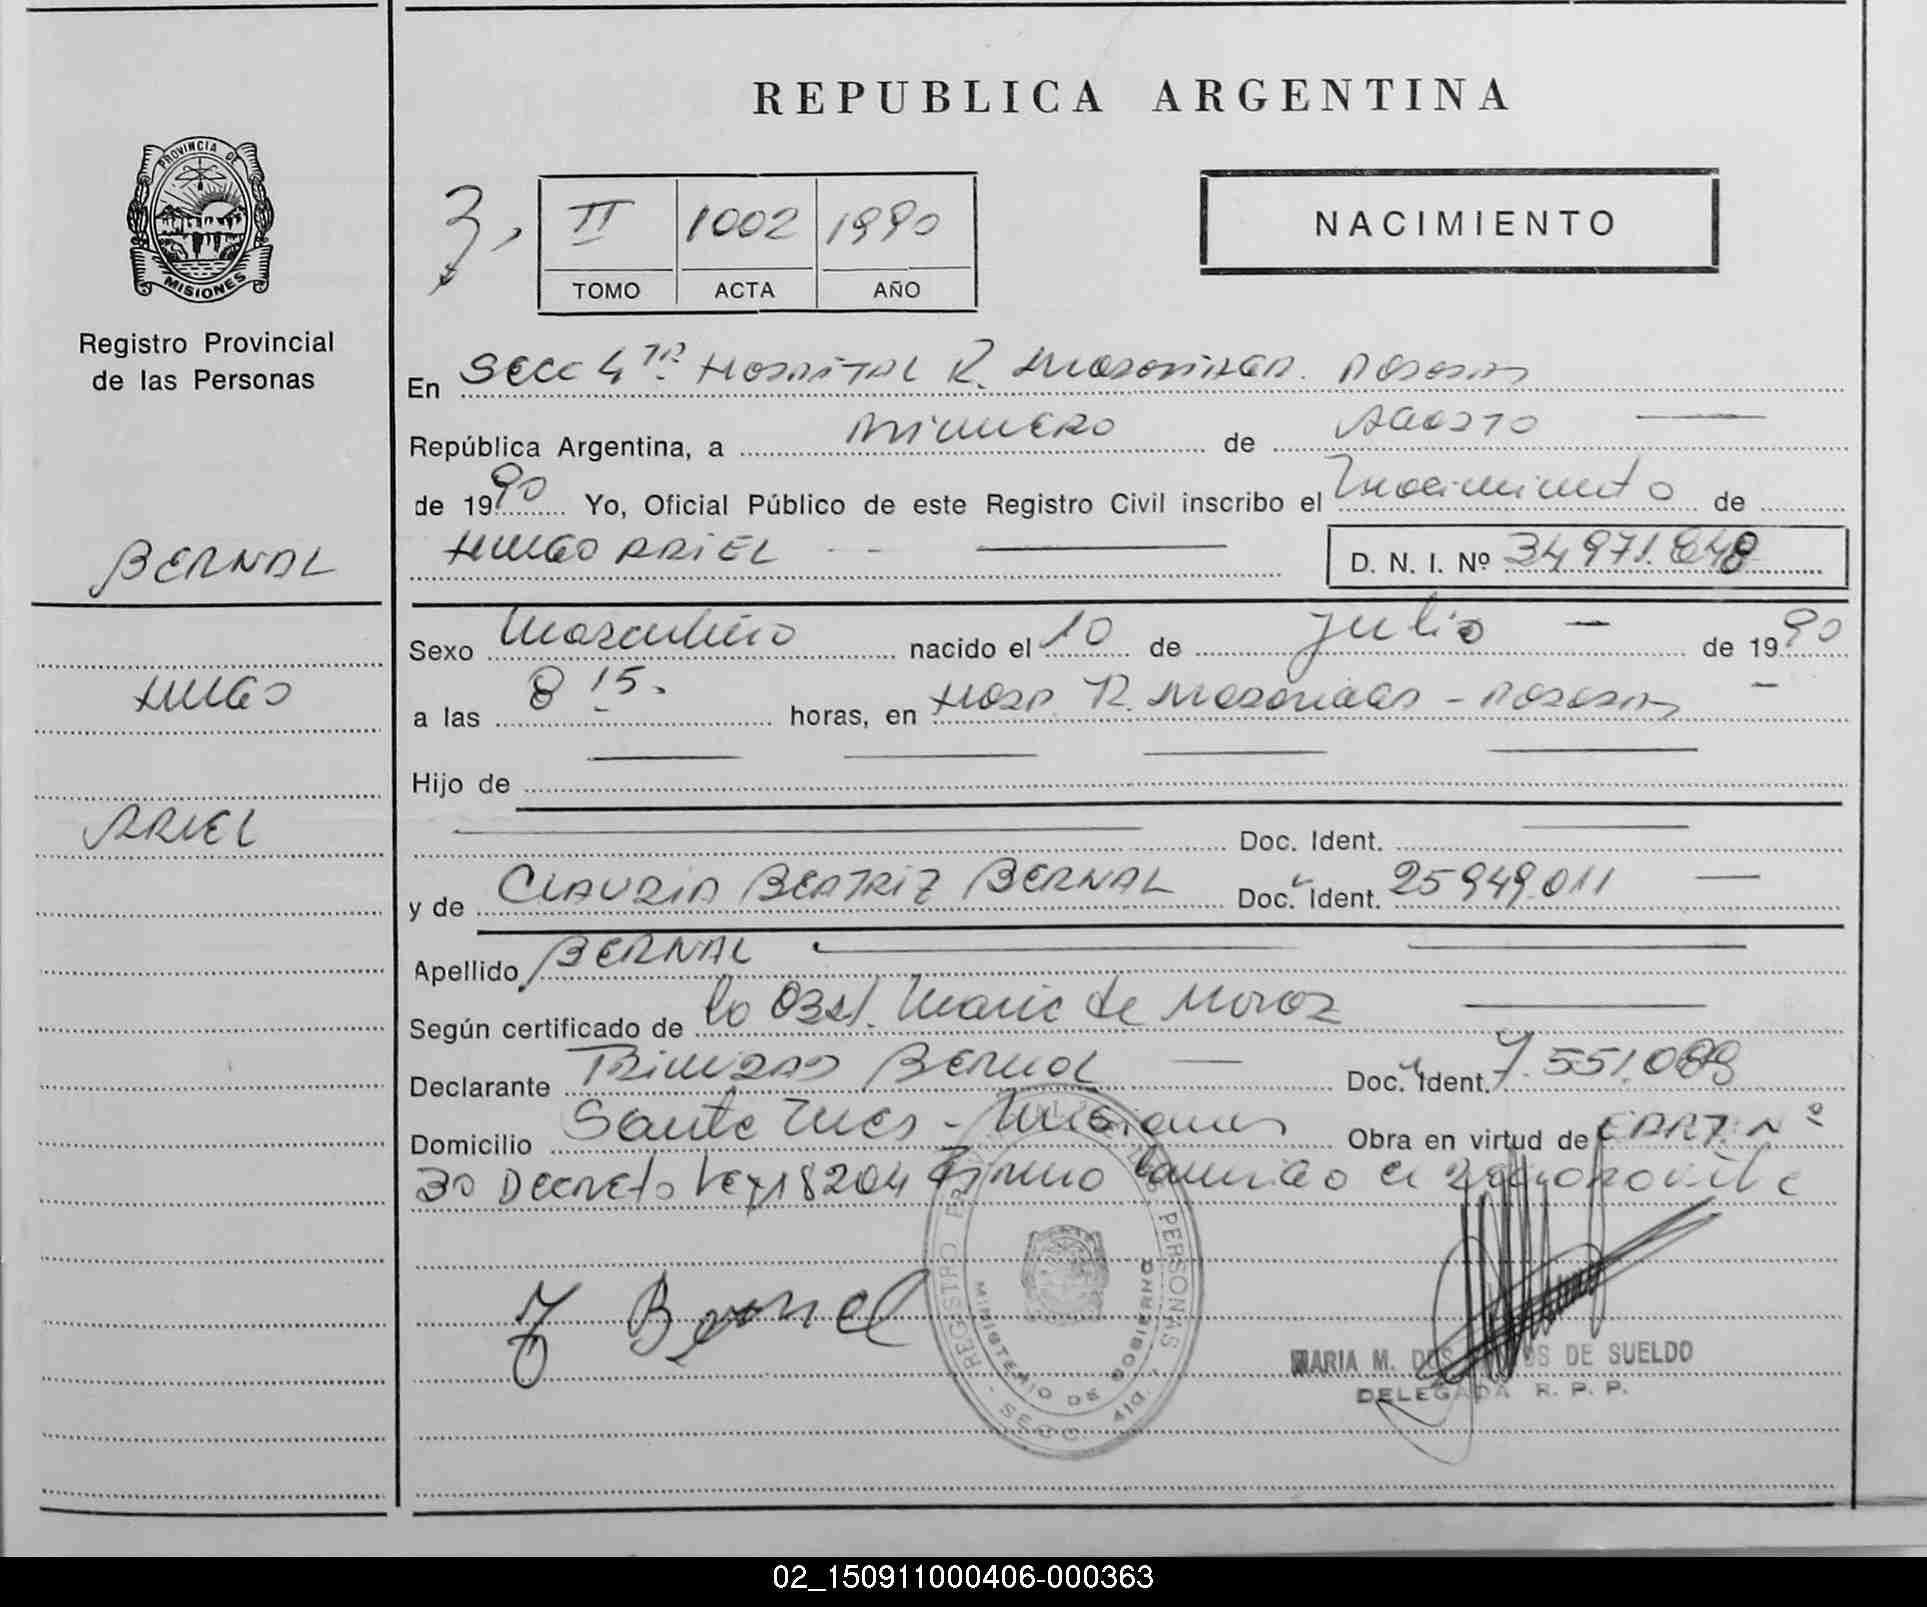 REPUBLICA ARGENTINA
PROVINCIA DE
MISIONES
Registro Provincial
de las Personas
3,
II 1002 1990
TOMO ACTA AÑO
NACIMIENTO
En SECC 4TA HOSPITAL R. MADARIAGA. POSADAS
República Argentina, a PRIMERO de AGOSTO
de 1990 Yo, Oficial Público de este Registro Civil inscribo el Nacimiento de
HUGO ARIEL D. N. I. Nº 34971.848
BERNAL
HUGO
ARIEL
Sexo Masculino nacido el 10 de Julio de 1990
a las 8 15. horas, en HOSP. R. MADARIAGA - POSADAS
Hijo de
Doc. Ident.
y de CLAUDIA BEATRIZ BERNAL Doc. Ident. 25949.011
Apellido BERNAL
Según certificado de la Obst. Maria de Moroz
Declarante TRINIDAD BERNAL Doc. Ident. 7.551.089
Domicilio Santa Ines - Misiones Obra en virtud de EL ART. Nº
30 Decreto Ley 18204 Firma conmigo el
J Bernal
REGISTRO PERSONAS
MINISTERIO DE GOBIERNO
SECC 4ta.
MARIA M. DOS DE SUELDO
DELEGADA R. P. P.
02_150911000406-000363